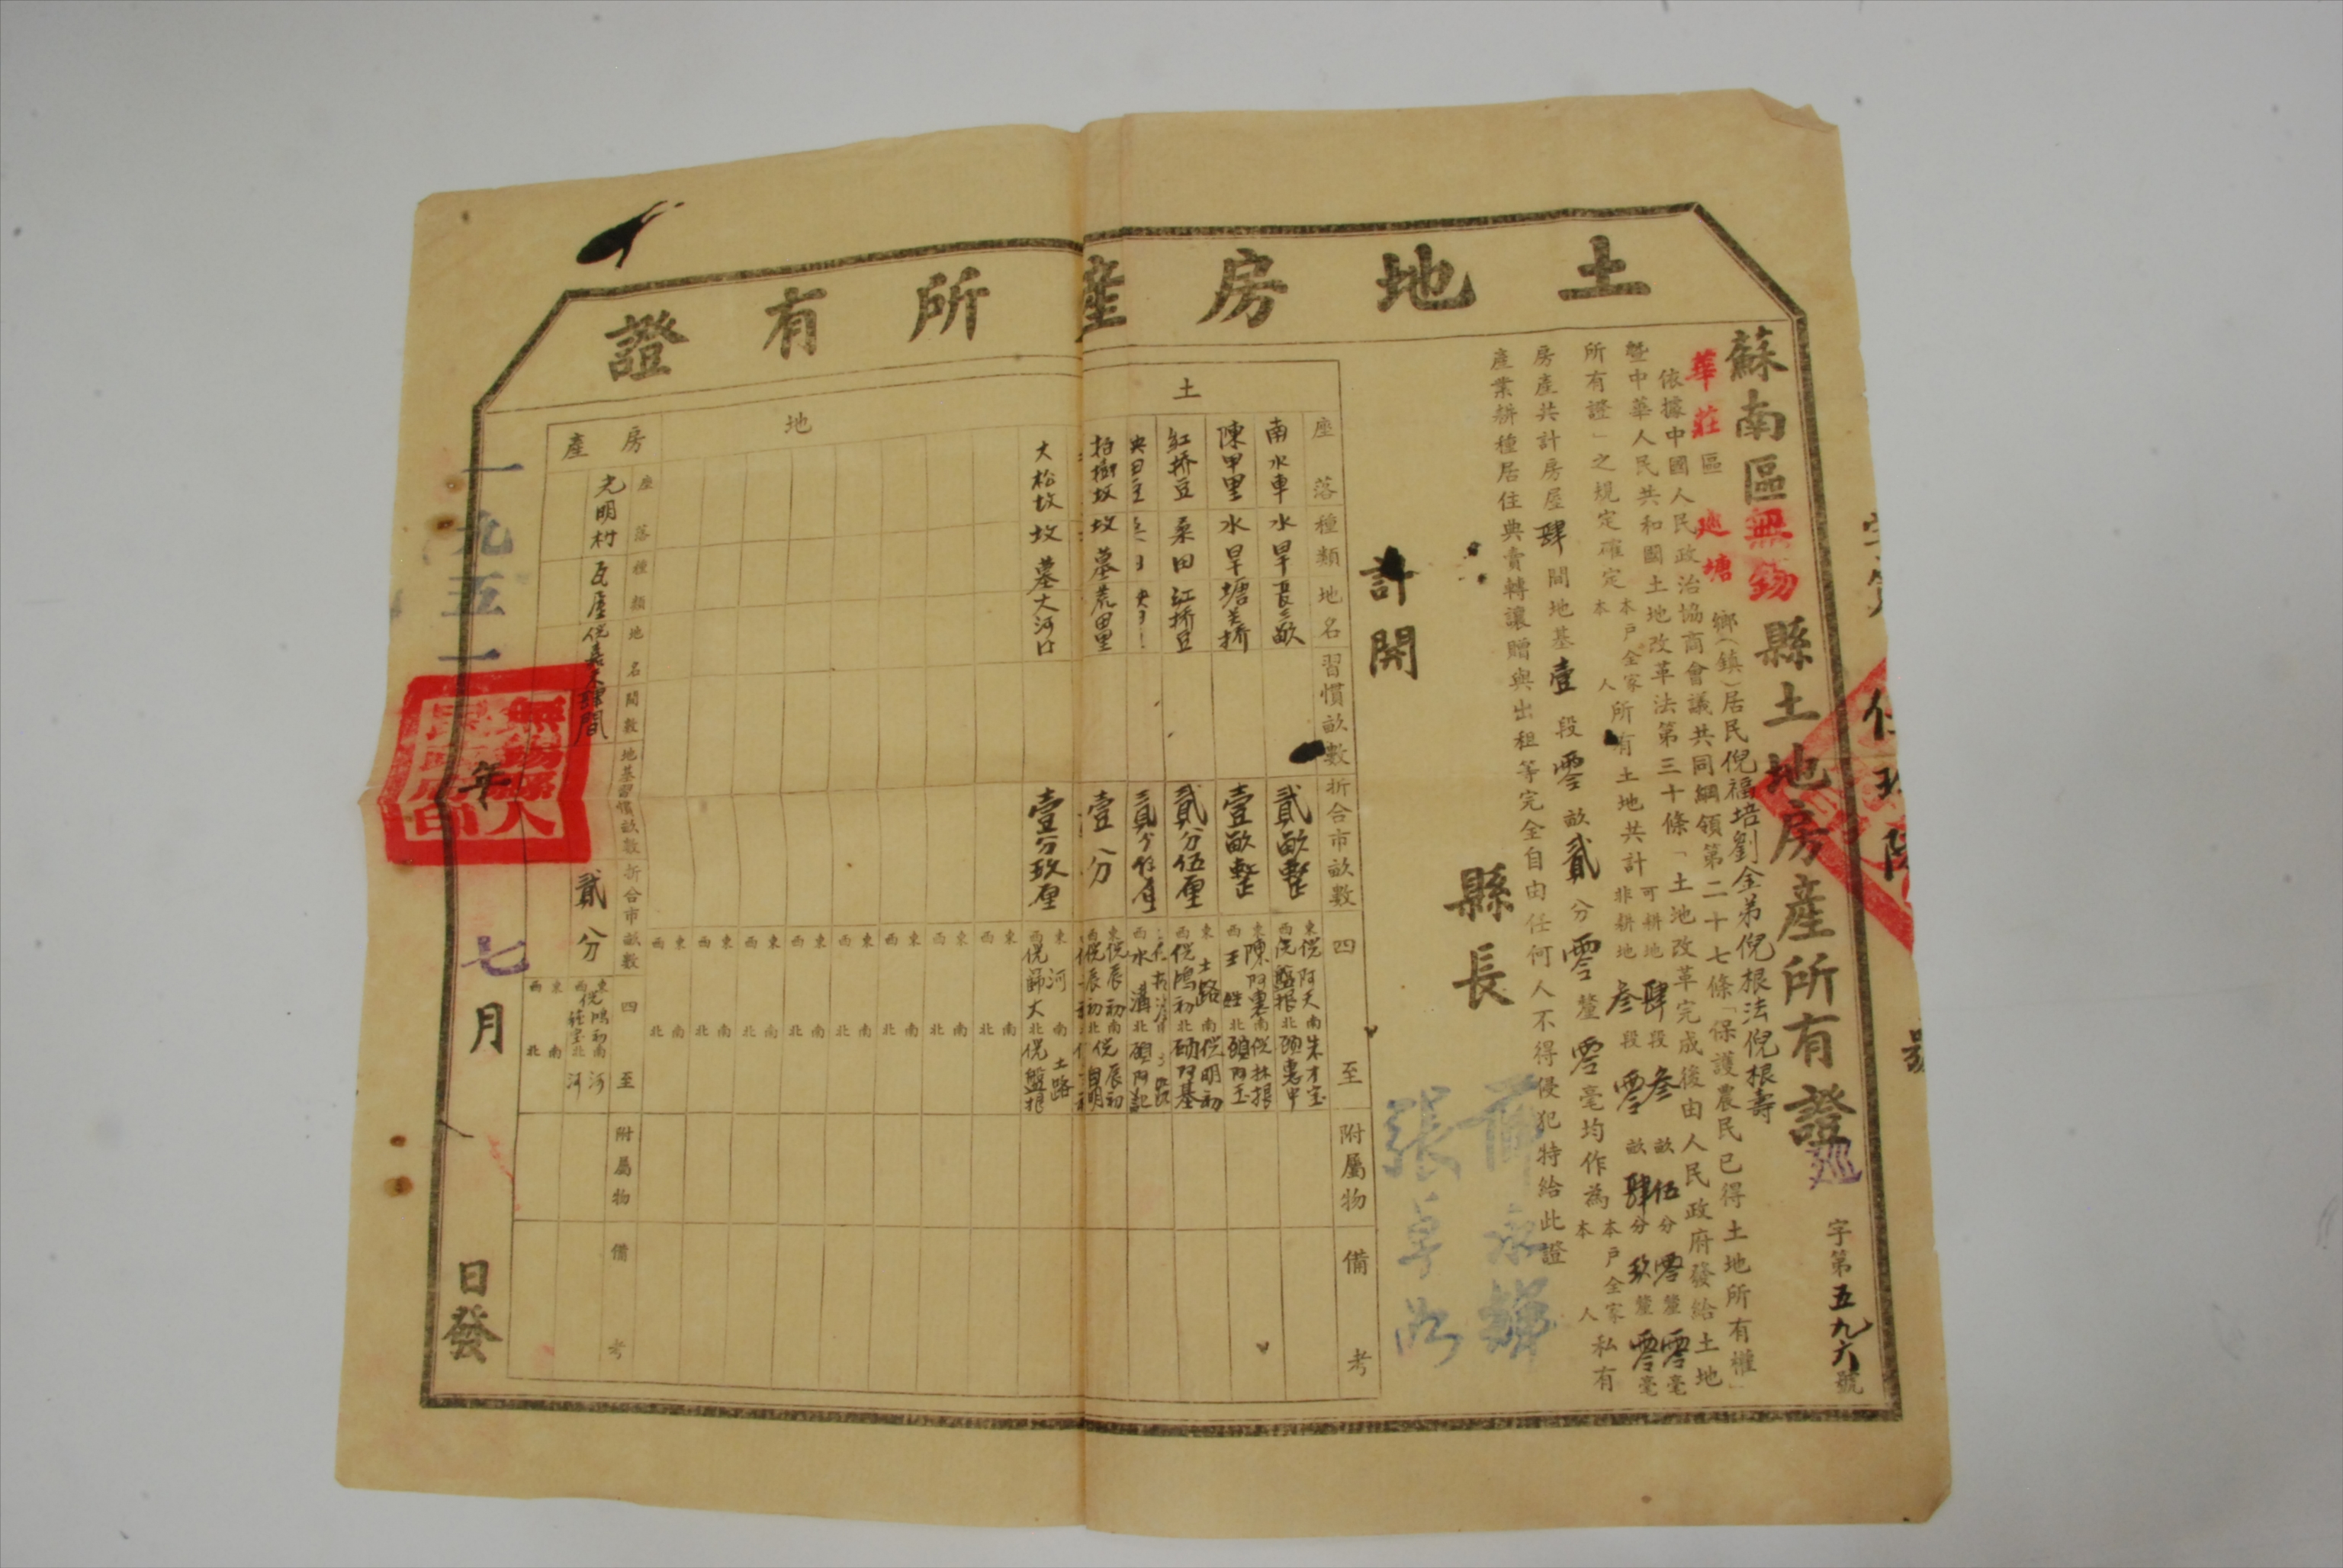 土地房產所有證
蘇南區無錫縣土地房產所有證
字第五九六號
華莊區 塘鄉(鎮)居民倪福培劉金弟倪根法倪根壽
依據中國人民政治協商會議共同綱領第二十七條「保護農民已得土地所有權」
暨中華人民共和國土地改革法第三十條「土地改革完成後由人民政府發給土地
所有證」之規定確定本戶全家本人所有土地共計可耕地肆段叁畝伍分零釐零毫非耕地叁段零畝肆分玖釐零毫
房產共計房屋肆間地基壹段零畝貳分零釐零毫均作為本戶全家本人私有
產業耕種居住典賣轉讓贈與出租等完全自由任何人不得侵犯特給此證
縣長
張卓
計開
土地
座落 種類 地名 習慣畝數 折合市畝數 四至 附屬物 備考
南水車 水旱 長三畝 貳畝整 東倪阿天 西倪盤根 南朱才宝 北
陳甲里 水旱 塘 橋 壹畝整 東陳阿 西王 南倪林根 北
紅桥豆 桑田 江桥豆 貳分伍厘 東土路 西倪鴻初 南倪明初 北
西水溝 北
柏樹坟 坟墓 荒田里 壹分 東倪辰初 西倪辰初 南倪辰初 北倪自明
大松坟 坟墓 大河口 壹分玖厘 東河 西倪 大 南土路 北倪盤根
房產
座落 種類 地名 間數 地基習慣畝數 折合市畝數 四至 附屬物 備考
光明村 瓦屋 倪 肆間 貳分 東倪鴻初 西 南河 北河
一九五一年七月 日發
無錫縣人民政府印